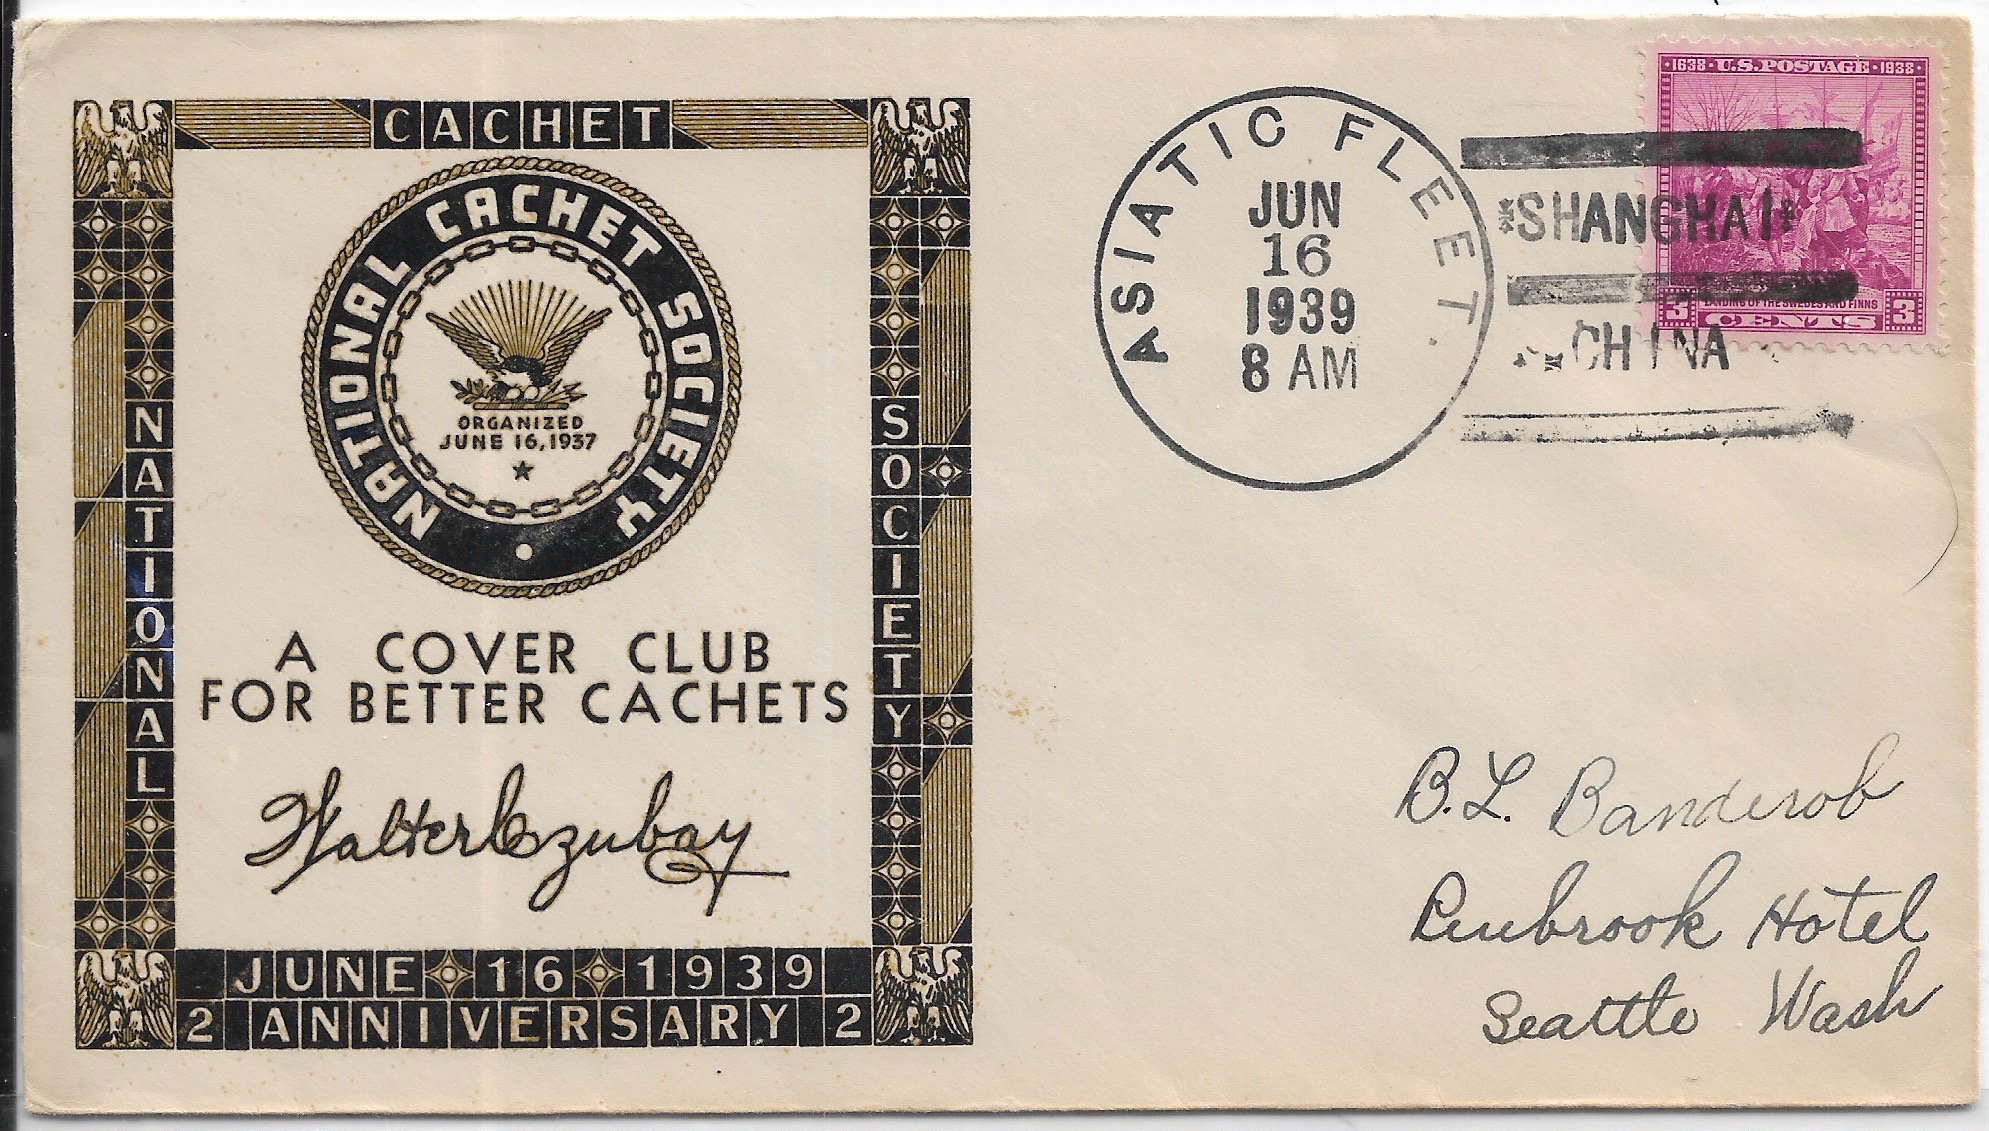 CACHET
NATIONAL
SOCIETY
NATIONAL CACHET SOCIETY
ORGANIZED
JUNE 16, 1937
A COVER CLUB
FOR BETTER CACHETS
Walter Czubay
JUNE 16 1939
2 ANNIVERSARY 2
ASIATIC FLEET.
JUN
16
1939
8 AM
SHANGHAI
CHINA
1638 · U.S. POSTAGE · 1938
LANDING OF THE SWEDES AND FINNS
3 CENTS 3
B. L. Banderob
Hotel
Seattle Wash